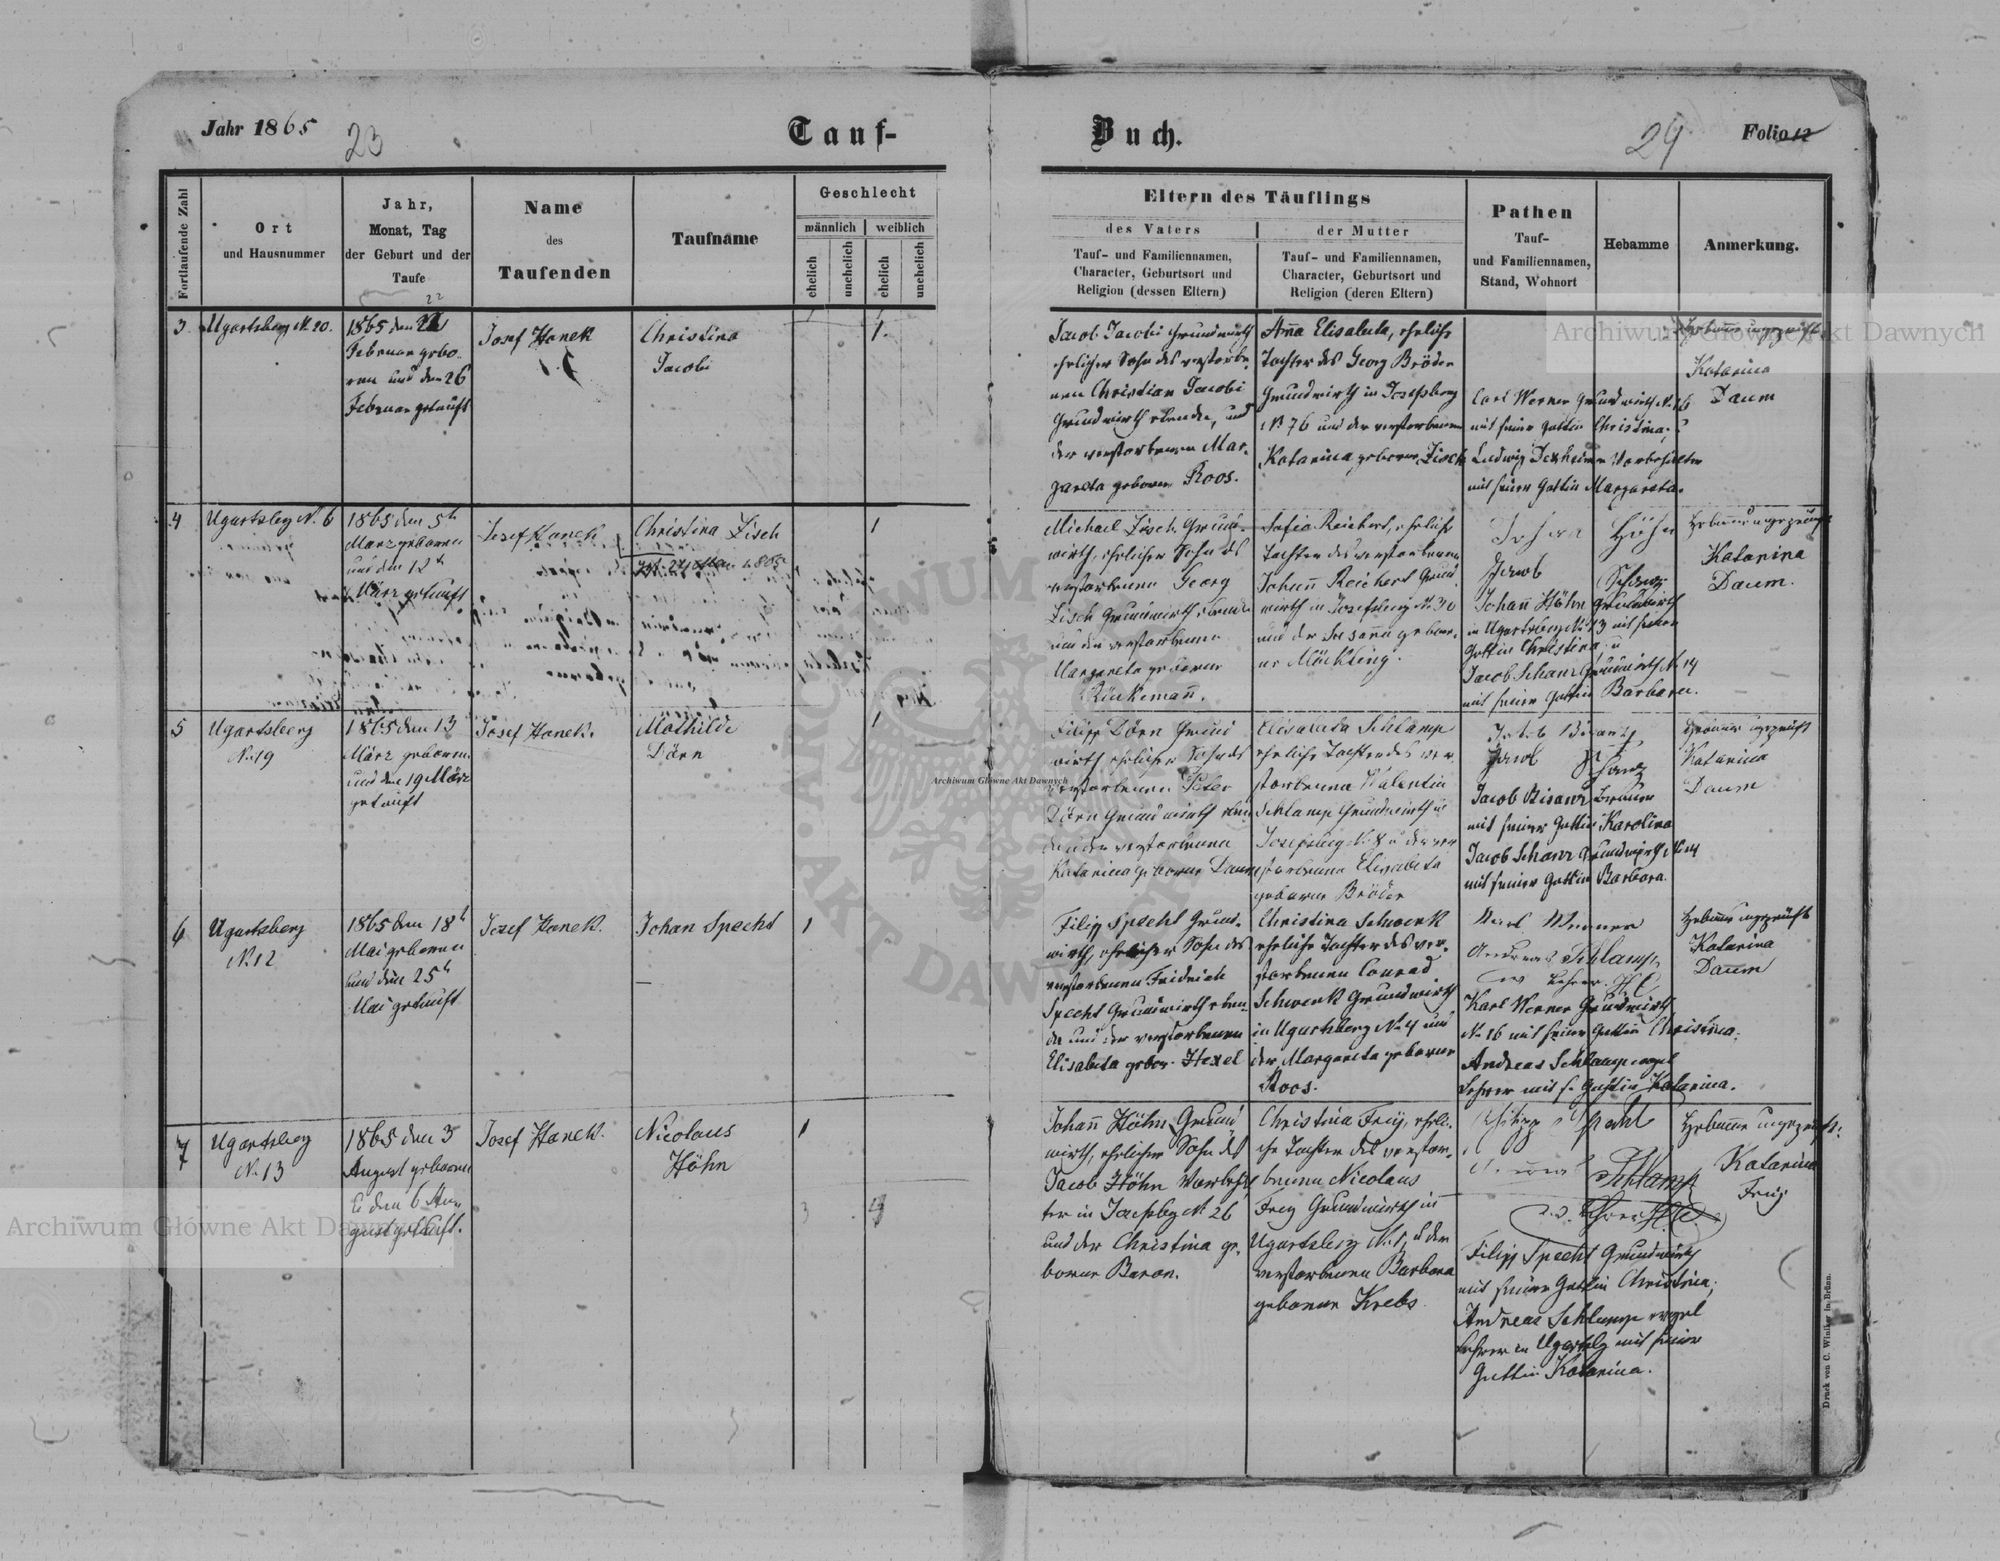 Jahr 1865
23
Tauf-
Buch.
24
Folio 12
Fortlaufende Zahl
Ort
und Hausnummer
Jahr,
Monat, Tag
der Geburt und der
Taufe
Name
des
Taufenden
Taufname
Geschlecht
männlich
weiblich
ehelich
unehelich
ehelich
unehelich
Eltern des Täuflings
des Vaters
Tauf- und Familiennamen,
Character, Geburtsort und
Religion (dessen Eltern)
der Mutter
Tauf- und Familiennamen,
Character, Geburtsort und
Religion (deren Eltern)
Pathen
Tauf-
und Familiennamen,
Stand, Wohnort
Hebamme
Anmerkung.
3.
Ugartsberg N. 20.
1865 den 22
Februar gebo-
ren und den 26
Februar getauft
Josef Hanek
Christina
Jacobi
1.
Jacob Jacobi Grundwirth
ehelicher Sohn des verstorbe-
nen Christian Jacobi
Grundwirth ebenda, und
der verstorbenen Mar-
gareta geborene Roos.
Anna Elisabeta, eheliche
Tochter des Georg Bröder
Grundwirth in Josefsberg
N 76 und der verstorbenen
Katarina geborene Zisch
Carl Werner Grundwirth N. 16
mit seiner Gattin Christina;
Ludwig Dexheimer Vorbehälter
mit seiner Gattin Margareta.
Hebamme ungeprüft
Katarina
Daum
4
Ugartsberg N. 6
1865 den 5t
März geboren
und den 12t
März getauft
Josef Hanek
Christina Zisch
1
Michael Zisch Grund-
wirth, ehelicher Sohn des
verstorbenen Georg
Zisch Grundwirth ebenda
und der verstorbenen
Margareta geborene
Rückemann.
Sofia Reichert, eheliche
Tochter des verstorbenen
Johann Reichert Grund-
wirth in Josefsberg N. 30
und der Susanna gebore-
ne Möckling.
Johan Höhn
Jacob Schanz
Johann Höhn Grundwirth
in Ugartsberg N. 13 mit seiner
Gattin Christina; u
Jacob Schanz Grundwirth N. 14
mit seiner Gattin Barbara.
Hebamme ungeprüft
Katarina
Daum.
5
Ugartsberg
N. 19
1865 den 13
März geboren
und den 19 März
getauft
Josef Hanek.
Mathilde
Dörn
1
Filipp Dörn Grund
wirth ehelicher Sohn des
verstorbenen Peter
Dörn Grundwirth eben
da u der verstorbenen
Katarina geborene Daum
Elisabeta Schlamp
eheliche Tochter des ver-
storbenen Valentin
Schlamp Grundwirth in
Josefsberg N. 8 u der ver
storbenen Elisabeta
geborene Bröder
Jakob Bisanz
Jacob Schanz
Jacob Bisanz
mit seiner Gattin Karolina
Jacob Schanz Grundwirth N. 14
mit seiner Gattin Barbara.
Hebamme ungeprüft
Katarina
Daum
6
Ugartsberg
N. 12
1865 den 18t
Mai geboren
und den 25t
Mai getauft
Josef Hanek.
Johan Specht
1
Filip Specht Grund-
wirth, ehelicher Sohn des
verstorbenen Fridrich
Specht Grundwirth eben-
da und der verstorbenen
Elisabeta gebor. Hexel
Christina Schwenk
eheliche Tochter des ver-
storbenen Conrad
Schwenk Grundwirth
in Ugartsberg N. 4 und
der Margareta geborene
Roos.
Karl Werner
Andreas Schlamp
ev Lehrer. HC
Karl Werner Grundwirth
N. 16 mit seiner Gattin Christina;
Andreas Schlamp evgel
Lehrer mit s. Gattin Katarina.
Hebamme ungeprüft
Katarina
Daum
7
Ugartsberg
N. 13
1865 den 3
August geboren
u den 6 Au-
gust getauft.
Josef Hanek.
Nicolaus
Höhn
1
Johann Höhn Grund
wirth, ehelicher Sohn des
Jacob Höhn Vorbehäl
ter in Josefsbg N. 26
und der Christina ge-
borene Baron.
Christina Frey, eheli-
che Tochter des verstor-
benen Nicolaus
Frey Grundwirth in
Ugartsberg N. 1, u der
verstorbenen Barbara
geborene Krebs
Philipp Specht
Schlamp
ev. Lehrer HC
Filipp Specht Grundwirth
mit seiner Gattin Christina;
Andreas Schlamp evgel
Lehrer in Ugartsbg mit seiner
Gattin Katarina.
Hebamme ungeprüft:
Katarina
Frey
3
4
Druck von C. Winiker in Brünn.
Archiwum Główne Akt Dawnych
Archiwum Główne Akt Dawnych
Archiwum Główne Akt Dawnych